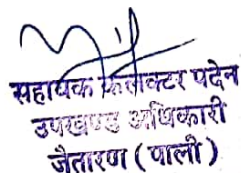 सहायक कलाक्टर पदेन
उपखण्ड अधिकारी
जैतारण (पाली)